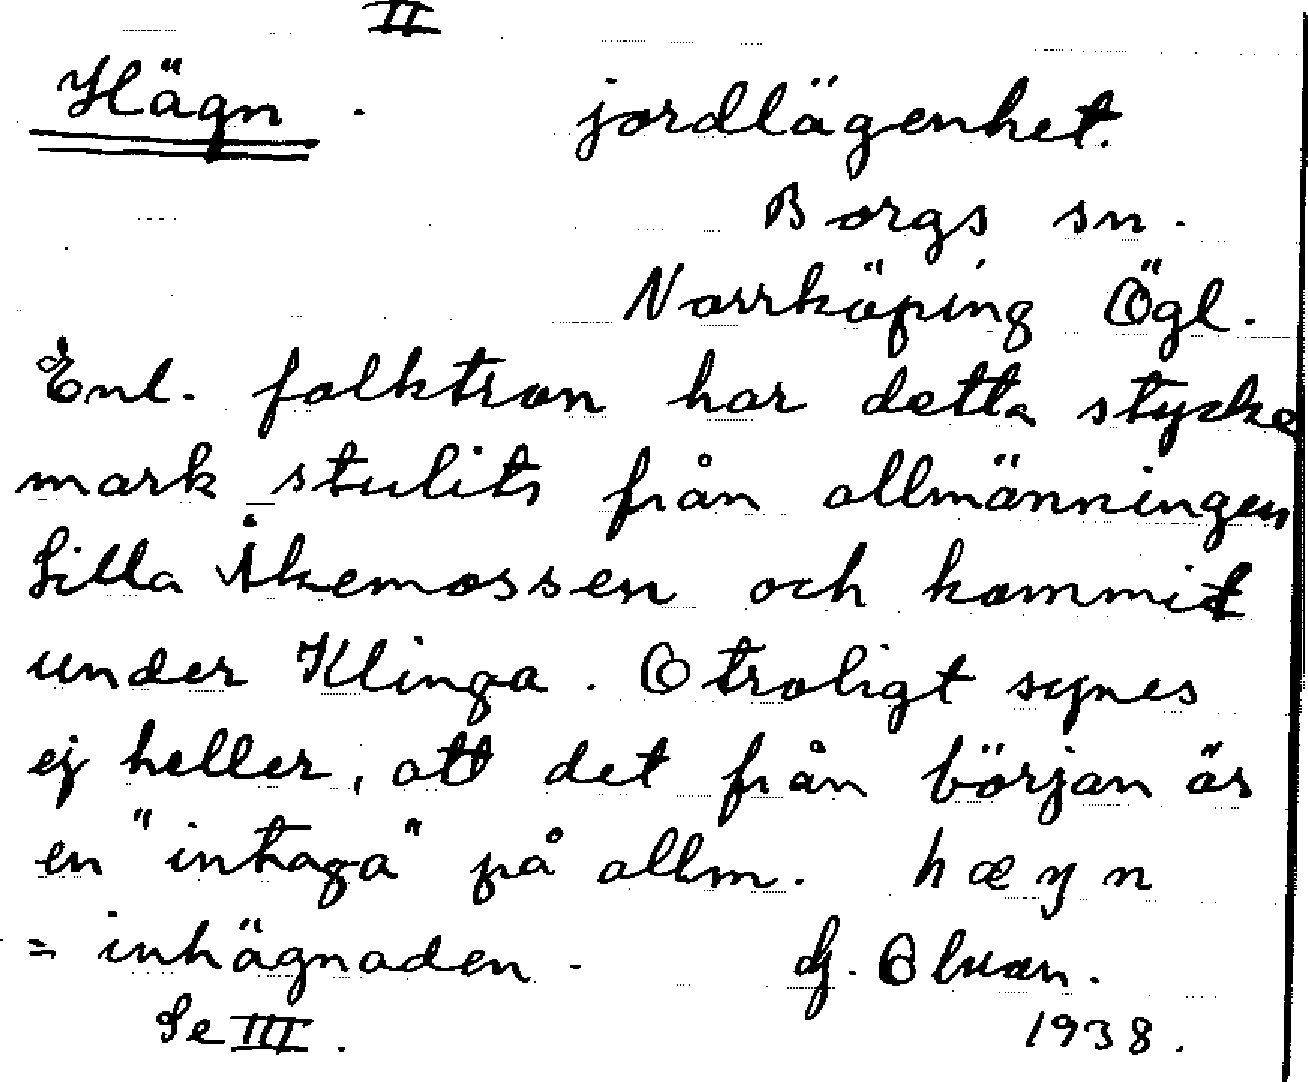 II
Hägn. jordlägenhet.
Borgs sn.
Norrköping Ögl.
Enl. folktron har detta stycke
mark stulits från allmänningen
Lilla Åkemossen och kommit
under Klinga. Otroligt synes
ej heller, att det från början är
en "intaga" på allm. hægn
= inhägnaden. G.
Se III. 1938.